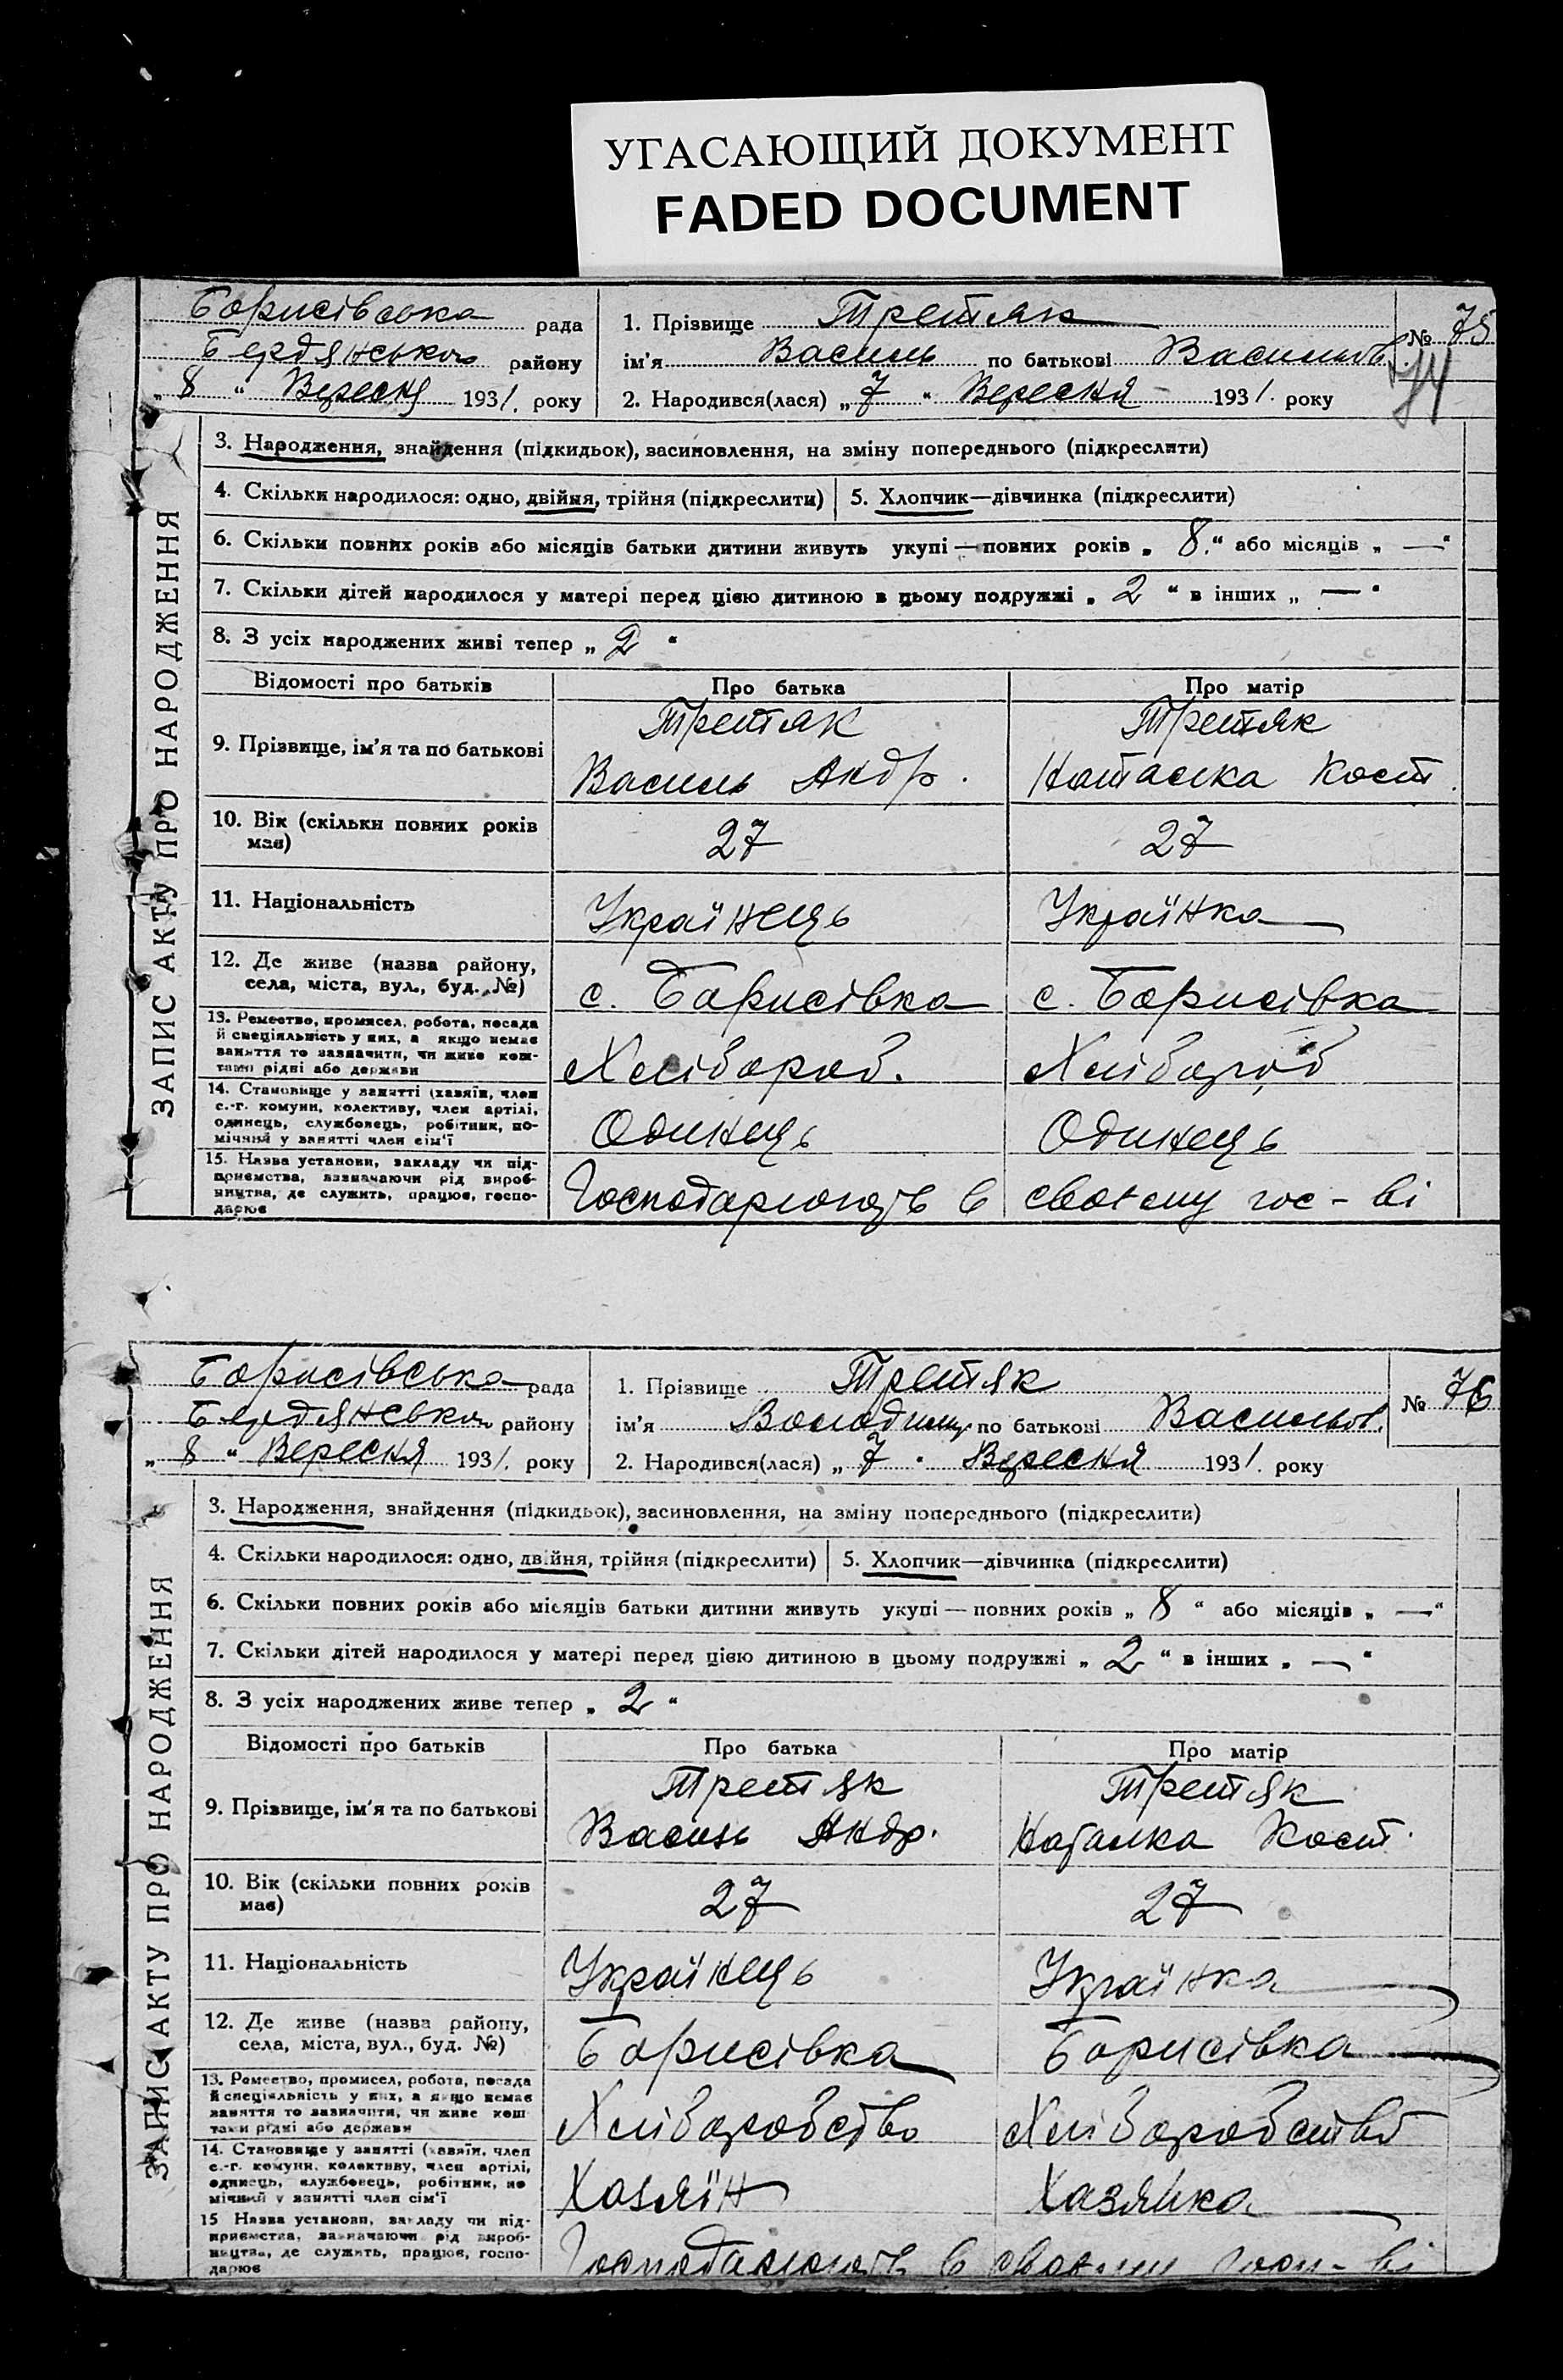 УГАСАЮЩИЙ ДОКУМЕНТ
FADED DOCUMENT
Борисівська рада
Бердянського району
„ 8 “ Вересня 1931. року
1. Прізвище Третяк
ім'я Василь по батькові Васильов.
2. Народився(лася) „ 7 “ Вересня 1931. року
№ 75
74
ЗАПИС АКТУ ПРО НАРОДЖЕННЯ
3. Народження, знайдення (підкидьок), засиновлення, на зміну попереднього (підкреслити)
4. Скільки народилося: одно, двійня, трійня (підкреслити) 5. Хлопчик—дівчинка (підкреслити)
6. Скільки повних років або місяців батьки дитини живуть укупі — повних років „ 8. “ або місяців „ — “
7. Скільки дітей народилося у матері перед цією дитиною в цьому подружжі „ 2 “ в інших „ — “
8. З усіх народжених живі тепер „ 2 “
Відомості про батьків Про батька Про матір
9. Прізвище, ім'я та по батькові
Третяк Третяк
Василь Андр. Наталка Кост.
10. Вік (скільки повних років має) 27 27
11. Національність Українець Українка
12. Де живе (назва району, села, міста, вул., буд. №) с. Борисівка с. Борисівка
13. Ремество, промисел, робота, посада й спеціяльність у них, а якщо немає заняття то зазначити, чи живе коштами рідні або держави
Хлібороб. Хлібороб
14. Становище у занятті (хазяїн, член с.-г. комуни, колективу, член артілі, одинець, службовець, робітник, помічний у занятті член сім'ї
Одинець Одинець
15. Назва установи, закладу чи підприємства, зазначаючи рід виробництва, де служить, працює, господарює
Господарюють в своєму гос-ві
Борисівська рада
Бердянського району
„ 8 “ Вересня 1931. року
1. Прізвище Третяк
ім'я Володимир по батькові Васильов.
2. Народився(лася) „ 7 “ Вересня 1931. року
№ 76
ЗАПИС АКТУ ПРО НАРОДЖЕННЯ
3. Народження, знайдення (підкидьок), засиновлення, на зміну попереднього (підкреслити)
4. Скільки народилося: одно, двійня, трійня (підкреслити) 5. Хлопчик—дівчинка (підкреслити)
6. Скільки повних років або місяців батьки дитини живуть укупі — повних років „ 8 “ або місяців „ — “
7. Скільки дітей народилося у матері перед цією дитиною в цьому подружжі „ 2 “ в інших „ — “
8. З усіх народжених живе тепер „ 2 “
Відомості про батьків Про батька Про матір
9. Прізвище, ім'я та по батькові
Третяк Третяк
Василь Андр. Наталка Кост.
10. Вік (скільки повних років має) 27 27
11. Національність Українець Українка
12. Де живе (назва району, села, міста, вул., буд. №) Борисівка Борисівка
13. Ремество, промисел, робота, посада й спеціяльність у них, а якщо немає заняття то зазначити, чи живе коштами рідні або держави
Хліборобство Хліборобство
14. Становище у занятті (хазяїн, член с.-г. комуни, колективу, член артілі, одинець, службовець, робітник, помічний у занятті член сім'ї
Хазяїн Хазяйка
15 Назва установи, закладу чи підприємства, зазначаючи рід виробництва, де служить, працює, господарює
Господарюють в своєму госп-ві